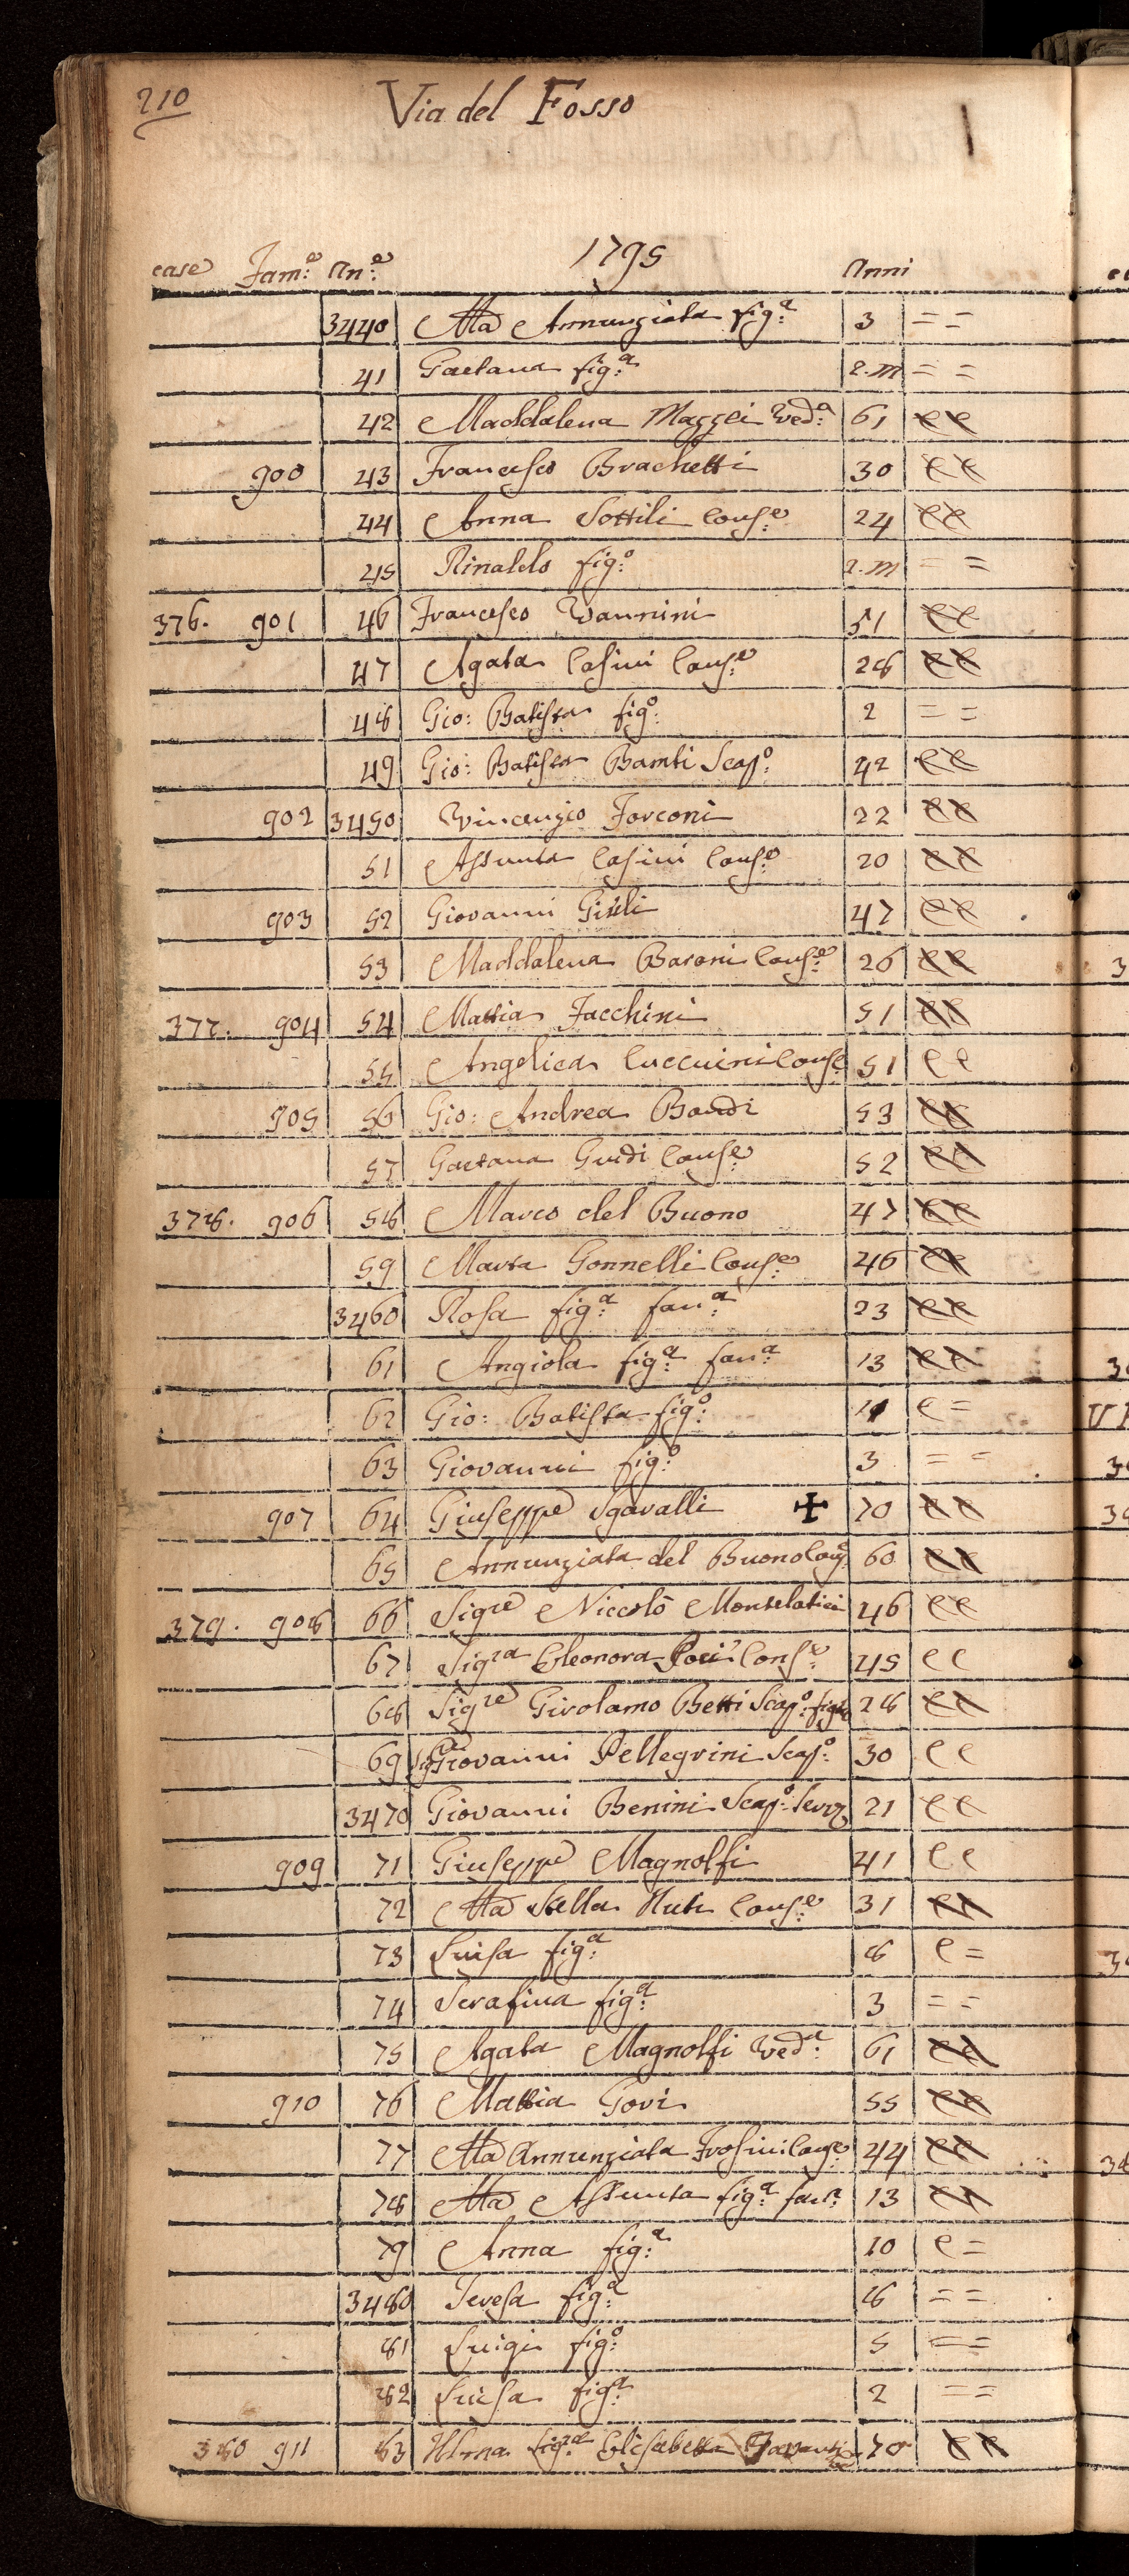 210
Via del Fosso
1795
case Fam:e An:e Anni
3440 Ma Annunziata fig:a 3 = =
41 Gaetana fig:a 2.m = =
42 Maddalena Mazzei Ved:a 61 e e
900 43 Francesco Brachetti 30 e e
44 Anna Sottili Cons:e 24 e e
45 Rinaldo fig:o 2.m = =
376. 901 46 Francesco Vannini 31 e e
47 Agata Casini Cons:e 28 e e
48 Gio: Batista fig:o 2 = =
49 Gio: Batista Bambi Scap:o 42 e e
902 3450 Vincenzio Forconi 22 e e
51 Assunta Casini Cons:e 20 e e
903 52 Giovanni 47 e e
53 Maddalena Baroni Cons:e 26 e e
377. 904 54 Mattia Facchini 51 e e
55 Angelica Cuccuini Cons:e 51 e e
905 56 Gio: Andrea Bandi 53 e e
57 Gaetana Guidi Cons:e 52 e e
378. 906 58 Marco del Buono 47 e e
59 Marta Gonnelli Cons:e 46 e e
3460 Rosa fig:a fan:a 23 e e
61 Angiola fig:a fan:a 13 e e
62 Gio: Batista fig:o e =
63 Giovanni fig:o 3 = =
907 64 Giuseppe Sgavalli ✠ 70 e e
65 Annunziata del Buono Con:e 60 e e
379. 908 66 Sigre Niccolò Montelatici 46 e e
67 Sigra Eleonora Cons:e 45 e e
68 Sigre Girolamo Betti Scap:o 28 e e
69 Sigre Giovanni Pellegrini Scap:o 30 e e
3470 Giovanni Benini Scap:o Servo 21 e e
909 71 Giuseppe Magnolfi 41 e e
72 Ma Stella Nuti Cons:e 31 e e
73 Luisa fig:a 8 e =
74 Serafina fig:a 3 = =
75 Agata Magnolfi Ved:a 61 e e
910 76 Mattia Gori 55 e e
77 Ma Annunziata Frosini Cons:e 44 e e
78 Ma Assunta fig:a fan:a 13 e e
79 Anna fig:a 10 e =
3480 Teresa fig:a 8 = =
81 Luigi fig:o 5 = =
82 Luisa fig:a 2 = =
380 911 83 Illma Sigra Elisabetta 70 e e